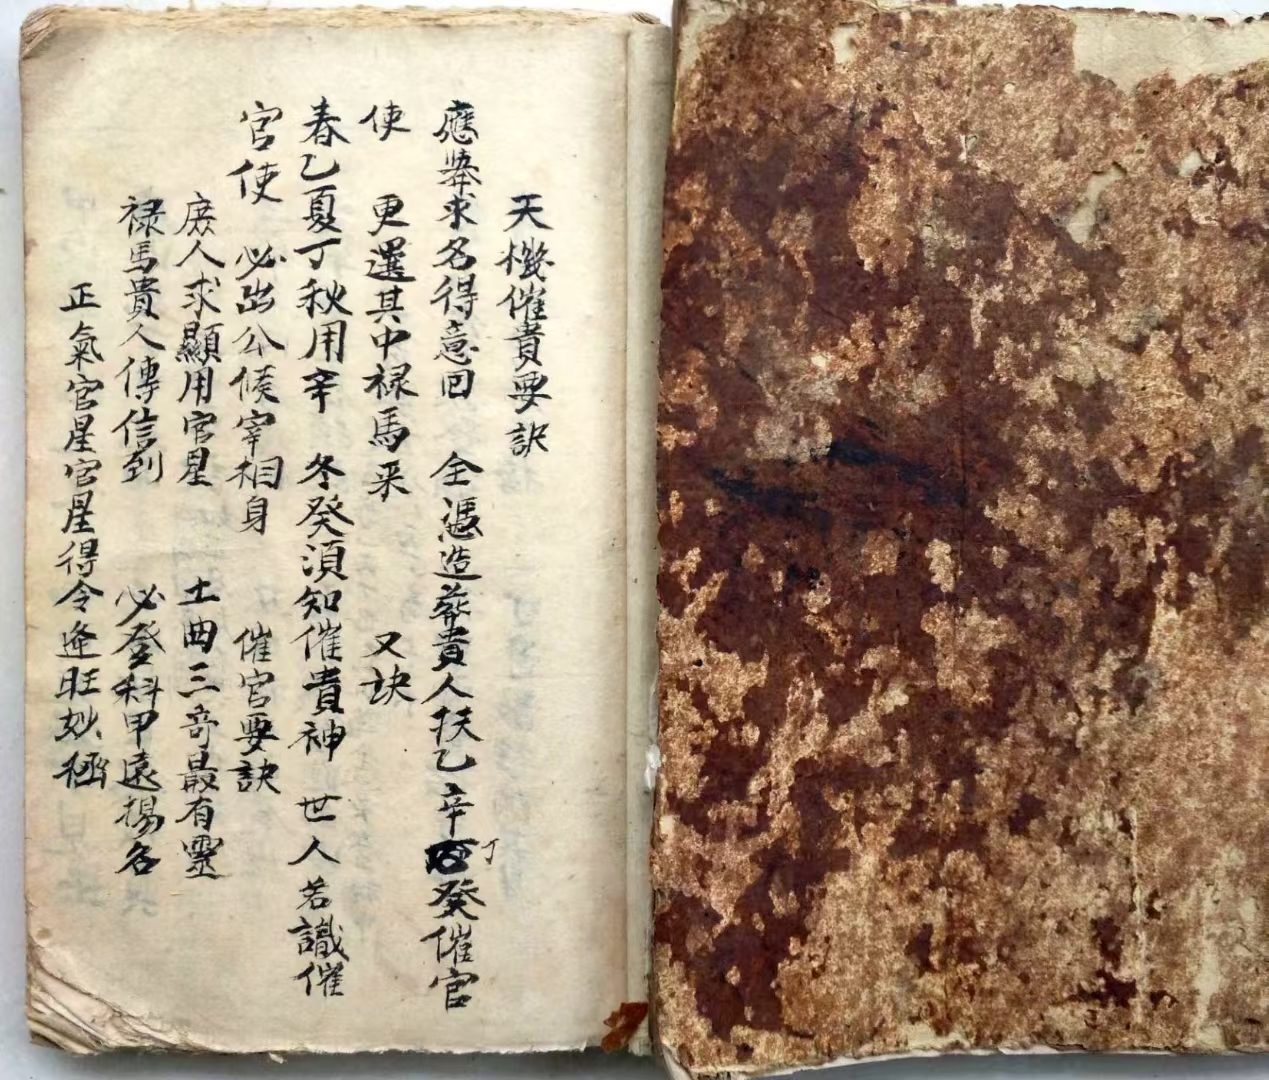 天機催貴要訣
應舉求名得意回　全憑造葬貴人扶乙辛丁癸催官
使　更選其中禄馬来　又訣
春乙夏丁秋用辛　冬癸須知催貴神　世人若識催
官使　必出公侯宰相身　催官要訣
庶人求顯用官星　土曲三奇最有靈
禄馬貴人傳信到　必登科甲遠揚名
正氣官星官星得令逢旺妙極